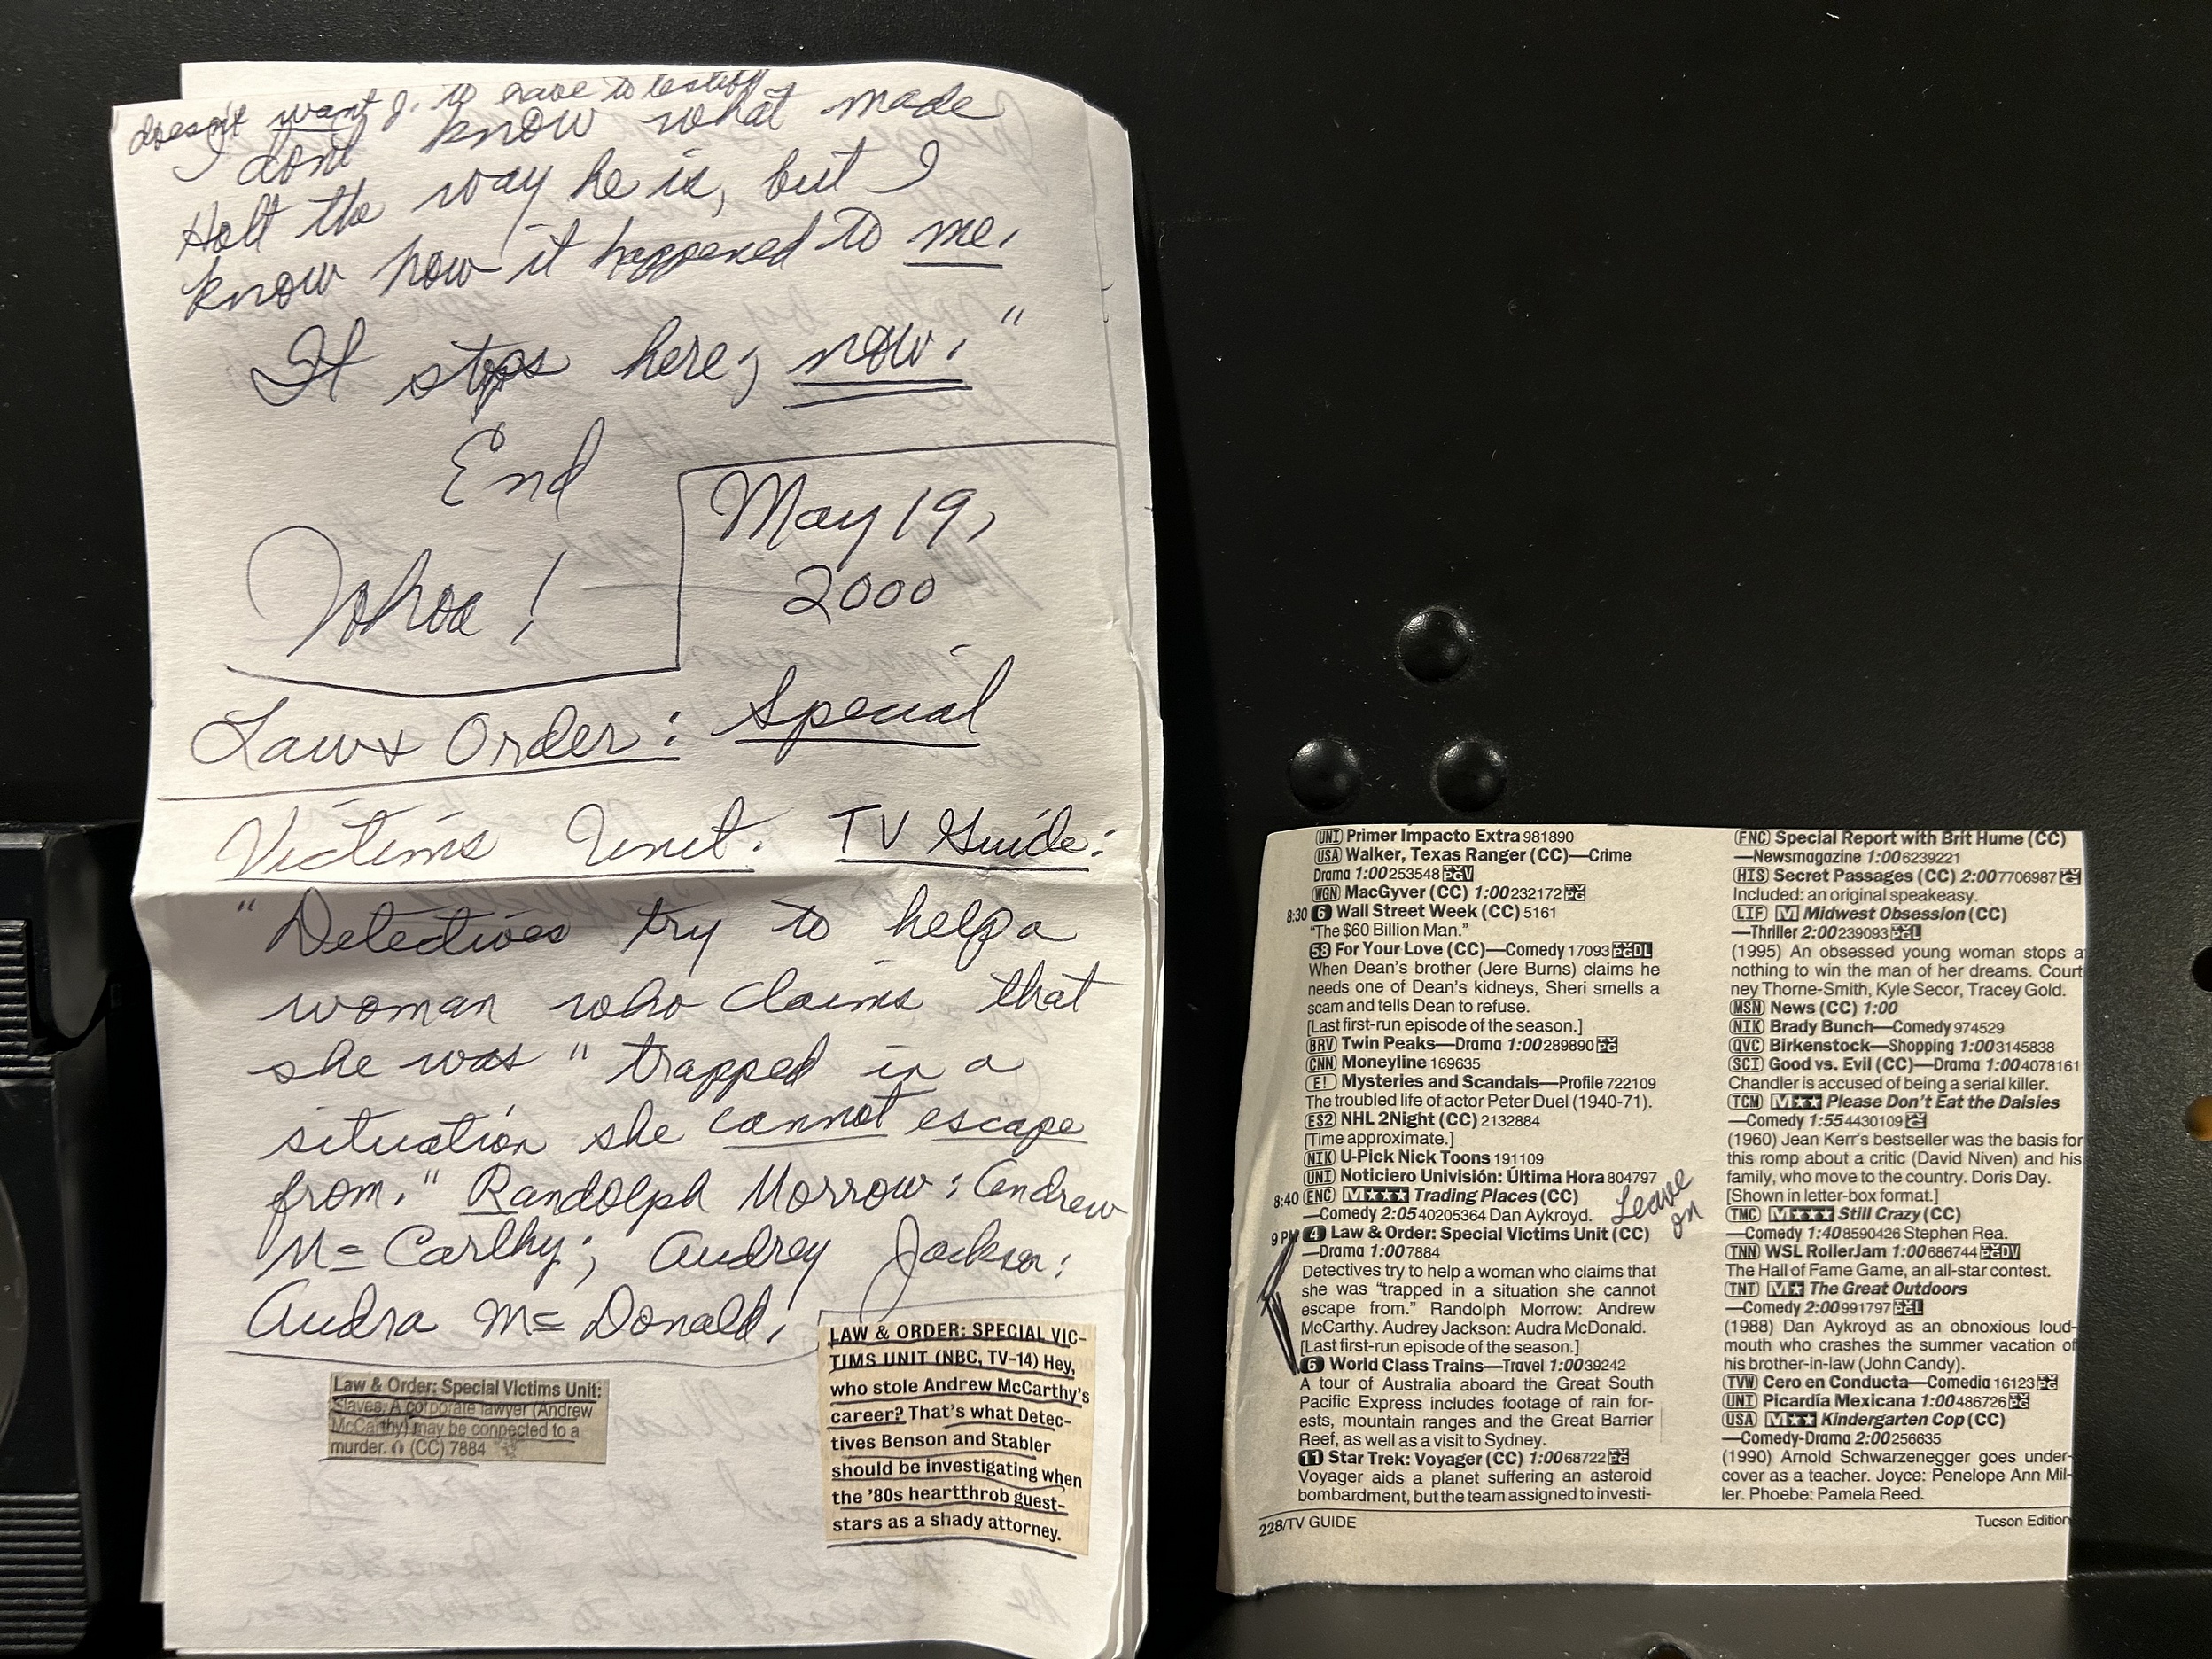 doesn't want J. to have to testify
I don't know what made
Holt the way he is, but I
know how it happened to me.
It stops here, now."
End
Whoa!
May 19,
2000
Law & Order: Special
Victims Unit. TV Guide:
"Detectives try to help a
woman who claims that
she was "trapped in a
situation she cannot escape
from." Randolph Morrow: Andrew
McCarthy; Audrey Jackson:
Audra McDonald.
Law & Order: Special Victims Unit:
Slaves. A corporate lawyer (Andrew
McCarthy) may be connected to a
murder. (CC) 7884
LAW & ORDER: SPECIAL VIC-
TIMS UNIT (NBC, TV-14) Hey,
who stole Andrew McCarthy's
career? That's what Detec-
tives Benson and Stabler
should be investigating when
the '80s heartthrob guest-
stars as a shady attorney.
UNI Primer Impacto Extra 981890
USA Walker, Texas Ranger (CC)—Crime
Drama 1:00 253548 PGV
WGN MacGyver (CC) 1:00 232172 PG
8:30 6 Wall Street Week (CC) 5161
"The $60 Billion Man."
58 For Your Love (CC)—Comedy 17093 PGDL
When Dean's brother (Jere Burns) claims he
needs one of Dean's kidneys, Sheri smells a
scam and tells Dean to refuse.
[Last first-run episode of the season.]
BRV Twin Peaks—Drama 1:00 289890 PG
CNN Moneyline 169635
E! Mysteries and Scandals—Profile 722109
The troubled life of actor Peter Duel (1940-71).
ES2 NHL 2Night (CC) 2132884
[Time approximate.]
NIK U-Pick Nick Toons 191109
UNI Noticiero Univisión: Última Hora 804797
8:40 ENC M★★★ Trading Places (CC)
—Comedy 2:05 40205364 Dan Aykroyd.
Leave
on
9 PM 4 Law & Order: Special Victims Unit (CC)
—Drama 1:00 7884
Detectives try to help a woman who claims that
she was "trapped in a situation she cannot
escape from." Randolph Morrow: Andrew
McCarthy. Audrey Jackson: Audra McDonald.
[Last first-run episode of the season.]
6 World Class Trains—Travel 1:00 39242
A tour of Australia aboard the Great South
Pacific Express includes footage of rain for-
ests, mountain ranges and the Great Barrier
Reef, as well as a visit to Sydney.
11 Star Trek: Voyager (CC) 1:00 68722 PG
Voyager aids a planet suffering an asteroid
bombardment, but the team assigned to investi-
228/TV GUIDE
FNC Special Report with Brit Hume (CC)
—Newsmagazine 1:00 6239221
HIS Secret Passages (CC) 2:00 7706987 G
Included: an original speakeasy.
LIF M Midwest Obsession (CC)
—Thriller 2:00 239093 PGL
(1995) An obsessed young woman stops a
nothing to win the man of her dreams. Court
ney Thorne-Smith, Kyle Secor, Tracey Gold.
MSN News (CC) 1:00
NIK Brady Bunch—Comedy 974529
QVC Birkenstock—Shopping 1:00 3145838
SCI Good vs. Evil (CC)—Drama 1:00 4078161
Chandler is accused of being a serial killer.
TCM M★★ Please Don't Eat the Daisies
—Comedy 1:55 4430109 G
(1960) Jean Kerr's bestseller was the basis for
this romp about a critic (David Niven) and his
family, who move to the country. Doris Day.
[Shown in letter-box format.]
TMC M★★★ Still Crazy (CC)
—Comedy 1:40 8590426 Stephen Rea.
TNN WSL RollerJam 1:00 686744 PGDV
The Hall of Fame Game, an all-star contest.
TNT M★ The Great Outdoors
—Comedy 2:00 991797 PGL
(1988) Dan Aykroyd as an obnoxious loud-
mouth who crashes the summer vacation of
his brother-in-law (John Candy).
TVW Cero en Conducta—Comedia 16123 PG
UNI Picardía Mexicana 1:00 486726 PG
USA M★★ Kindergarten Cop (CC)
—Comedy-Drama 2:00 256635
(1990) Arnold Schwarzenegger goes under-
cover as a teacher. Joyce: Penelope Ann Mil-
ler. Phoebe: Pamela Reed.
Tucson Edition